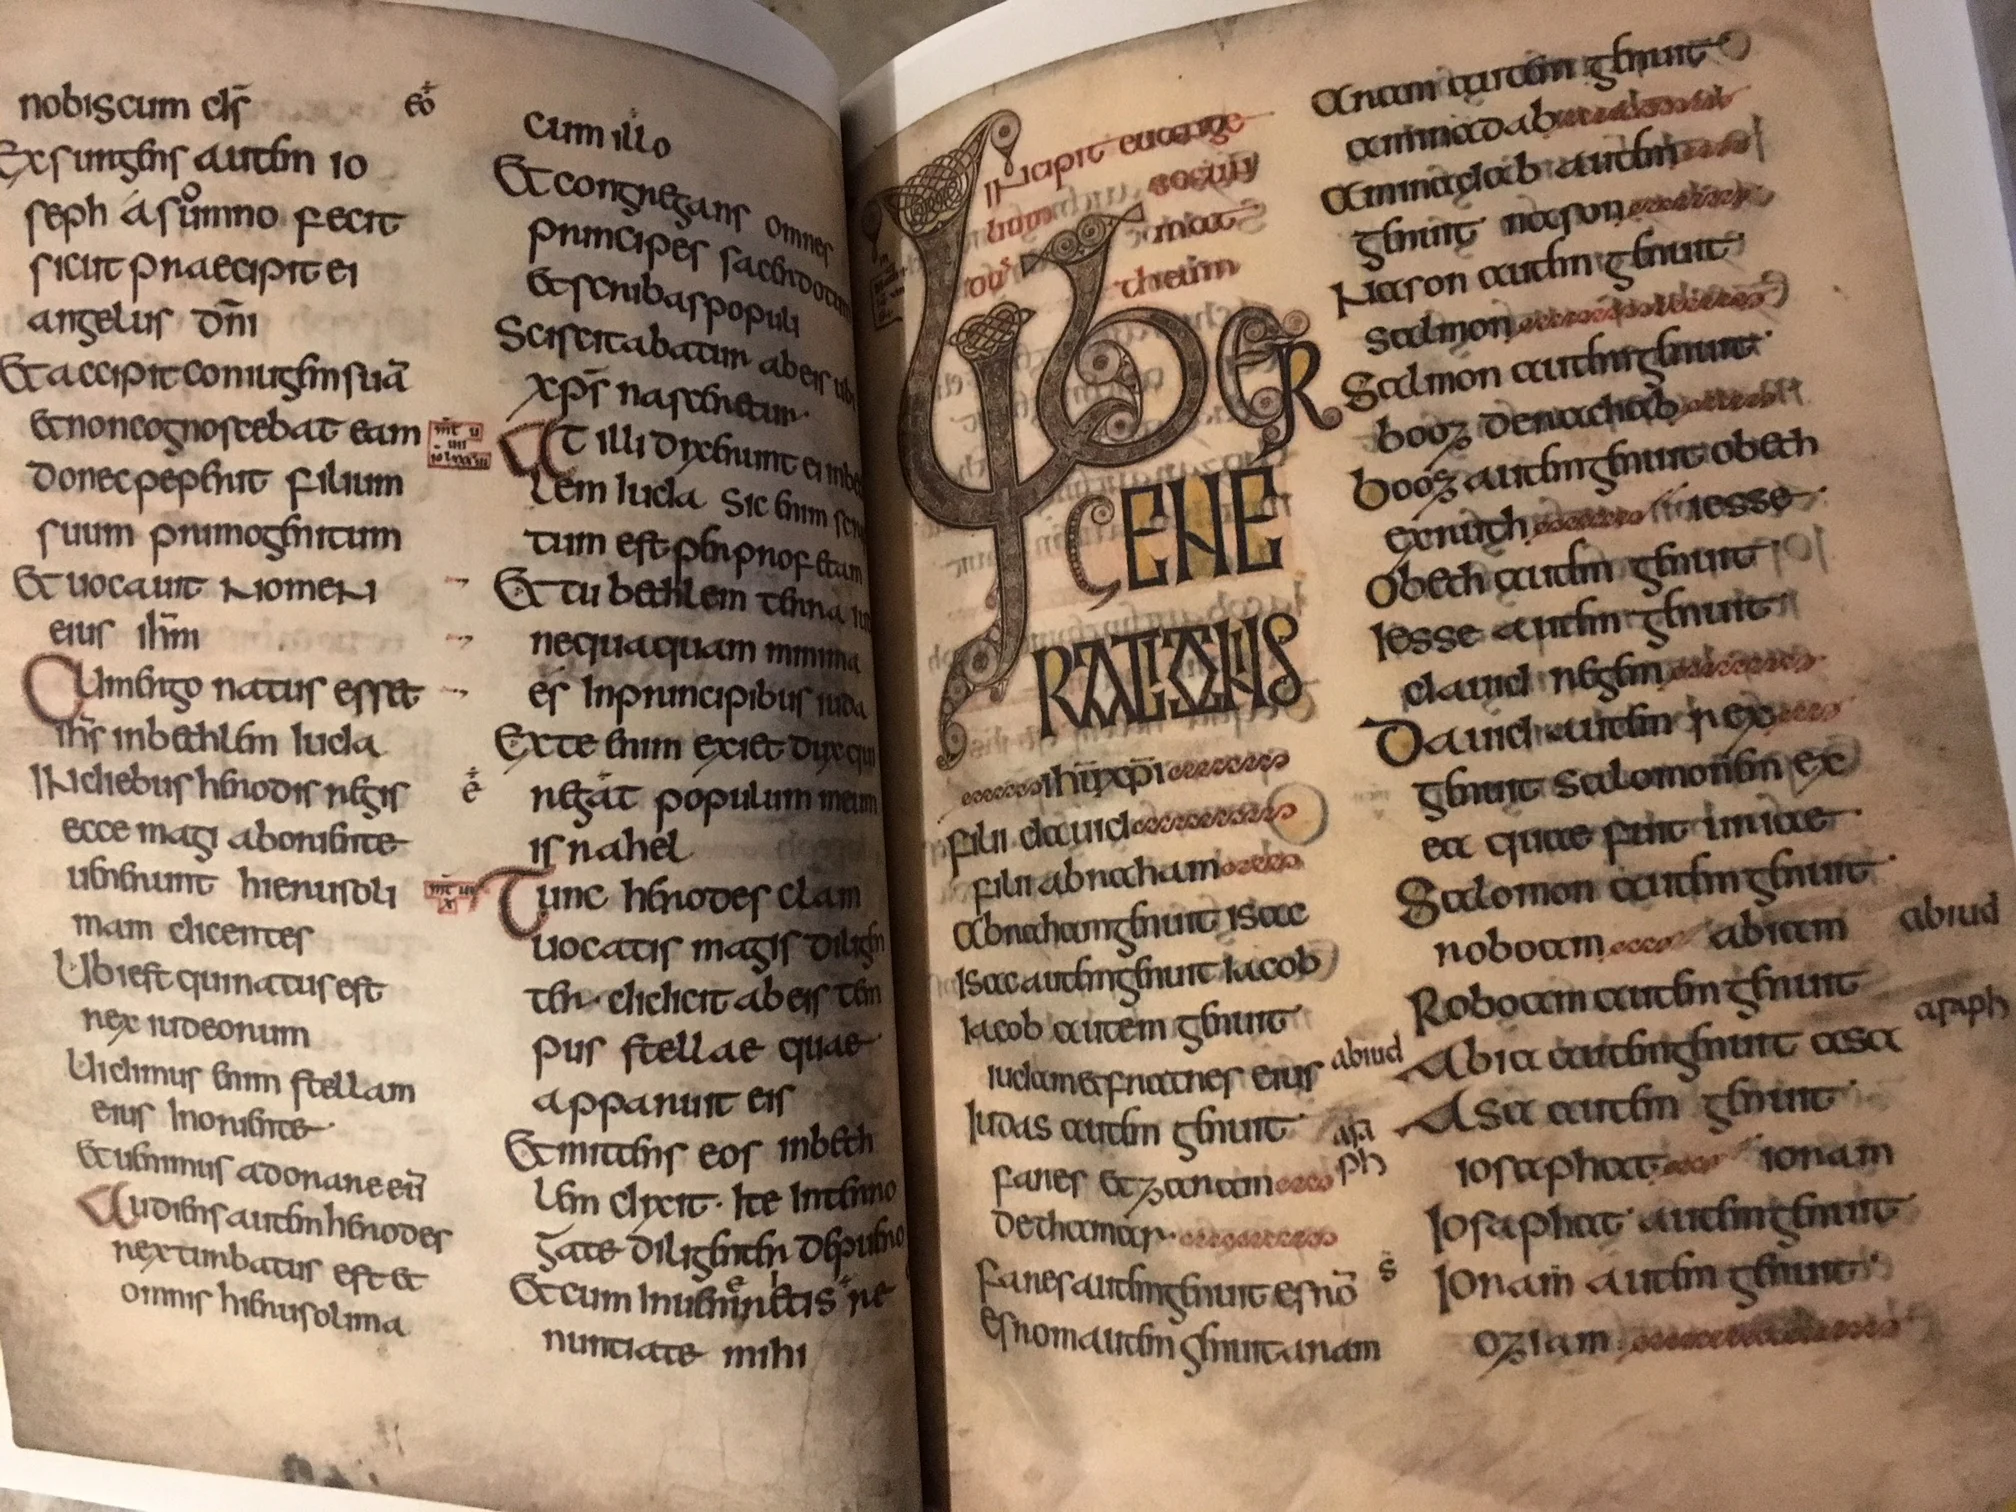 nobiscum ds̄
Exsurgens autem io
seph ásomno fecit
sicut praecipit ei
angelus dn̄i
Et accipit coniugem suā
et non cognoscebat eam
donec peperit filium
suum primogenitum
Et uocauit nomen
eius ihm̄
Cum ergo natus esset
ih̄s in bethlem iuda
In diebus herodis regis
ecce magi ab oriente
uenerunt hierusoli
mam dicentes
Ubi est qui natus est
rex iudeorum
Uidimus enim stellam
eius in oriente
et uenimus adorare eū
Audiens autem herodes
rex turbatus est et
omnis hierusolima
cum illo
Et congregans omnes
principes sacerdotum
et scribas populi
Sciscitabatur ab eis ubi
xp̄s nasceretur
At illi dixerunt ei in be
lem iuda sic enim scrip
tum est per profetam
Et tu bethlem terra iu
nequaquam minima
és in principibus iuda
Ex te enim exiet dux qui
regat populum meum
israhel
Tunc herodes clam
uocatis magis diligen
ter didicit ab eis tem
pus stellae quae
apparuit eis
Et mittens eos in beth
lem dixit · Ite interro
gate diligenter de puero
Et cum inueneritis re
nuntiate mihi
Incipit euange
lium secun
mat
theum
Liber
GENE
RATIONIS
ih̄u xp̄i
filii dauid
filii abracham
Abracham genuit isac
Isac autem genuit iacob
Iacob autem genuit
iudam et fratres eius
Iudas autem genuit
fares et zaram
de thamar
fares autem genuit esrō
esrom autem genuit aram
Aram autem genuit
aminadab
Aminadab autem
genuit nason
Nason autem genuit
salmon
Salmon autem genuit
booz de rachab
booz autem genuit obeth
ex ruth iesse
Obeth autem genuit
Iesse autem genuit
dauid regem
Dauid autem rex
genuit salomonem ex
ea quae fuit uriae
Salomon autem genuit
roboam abiam abiud
Roboam autem genuit
Abia autem genuit asa asaph
Asa autem genuit
iosaphat ioram
Iosaphat autem genuit
Ioram autem genuit
oziam
abiud
asa
ph